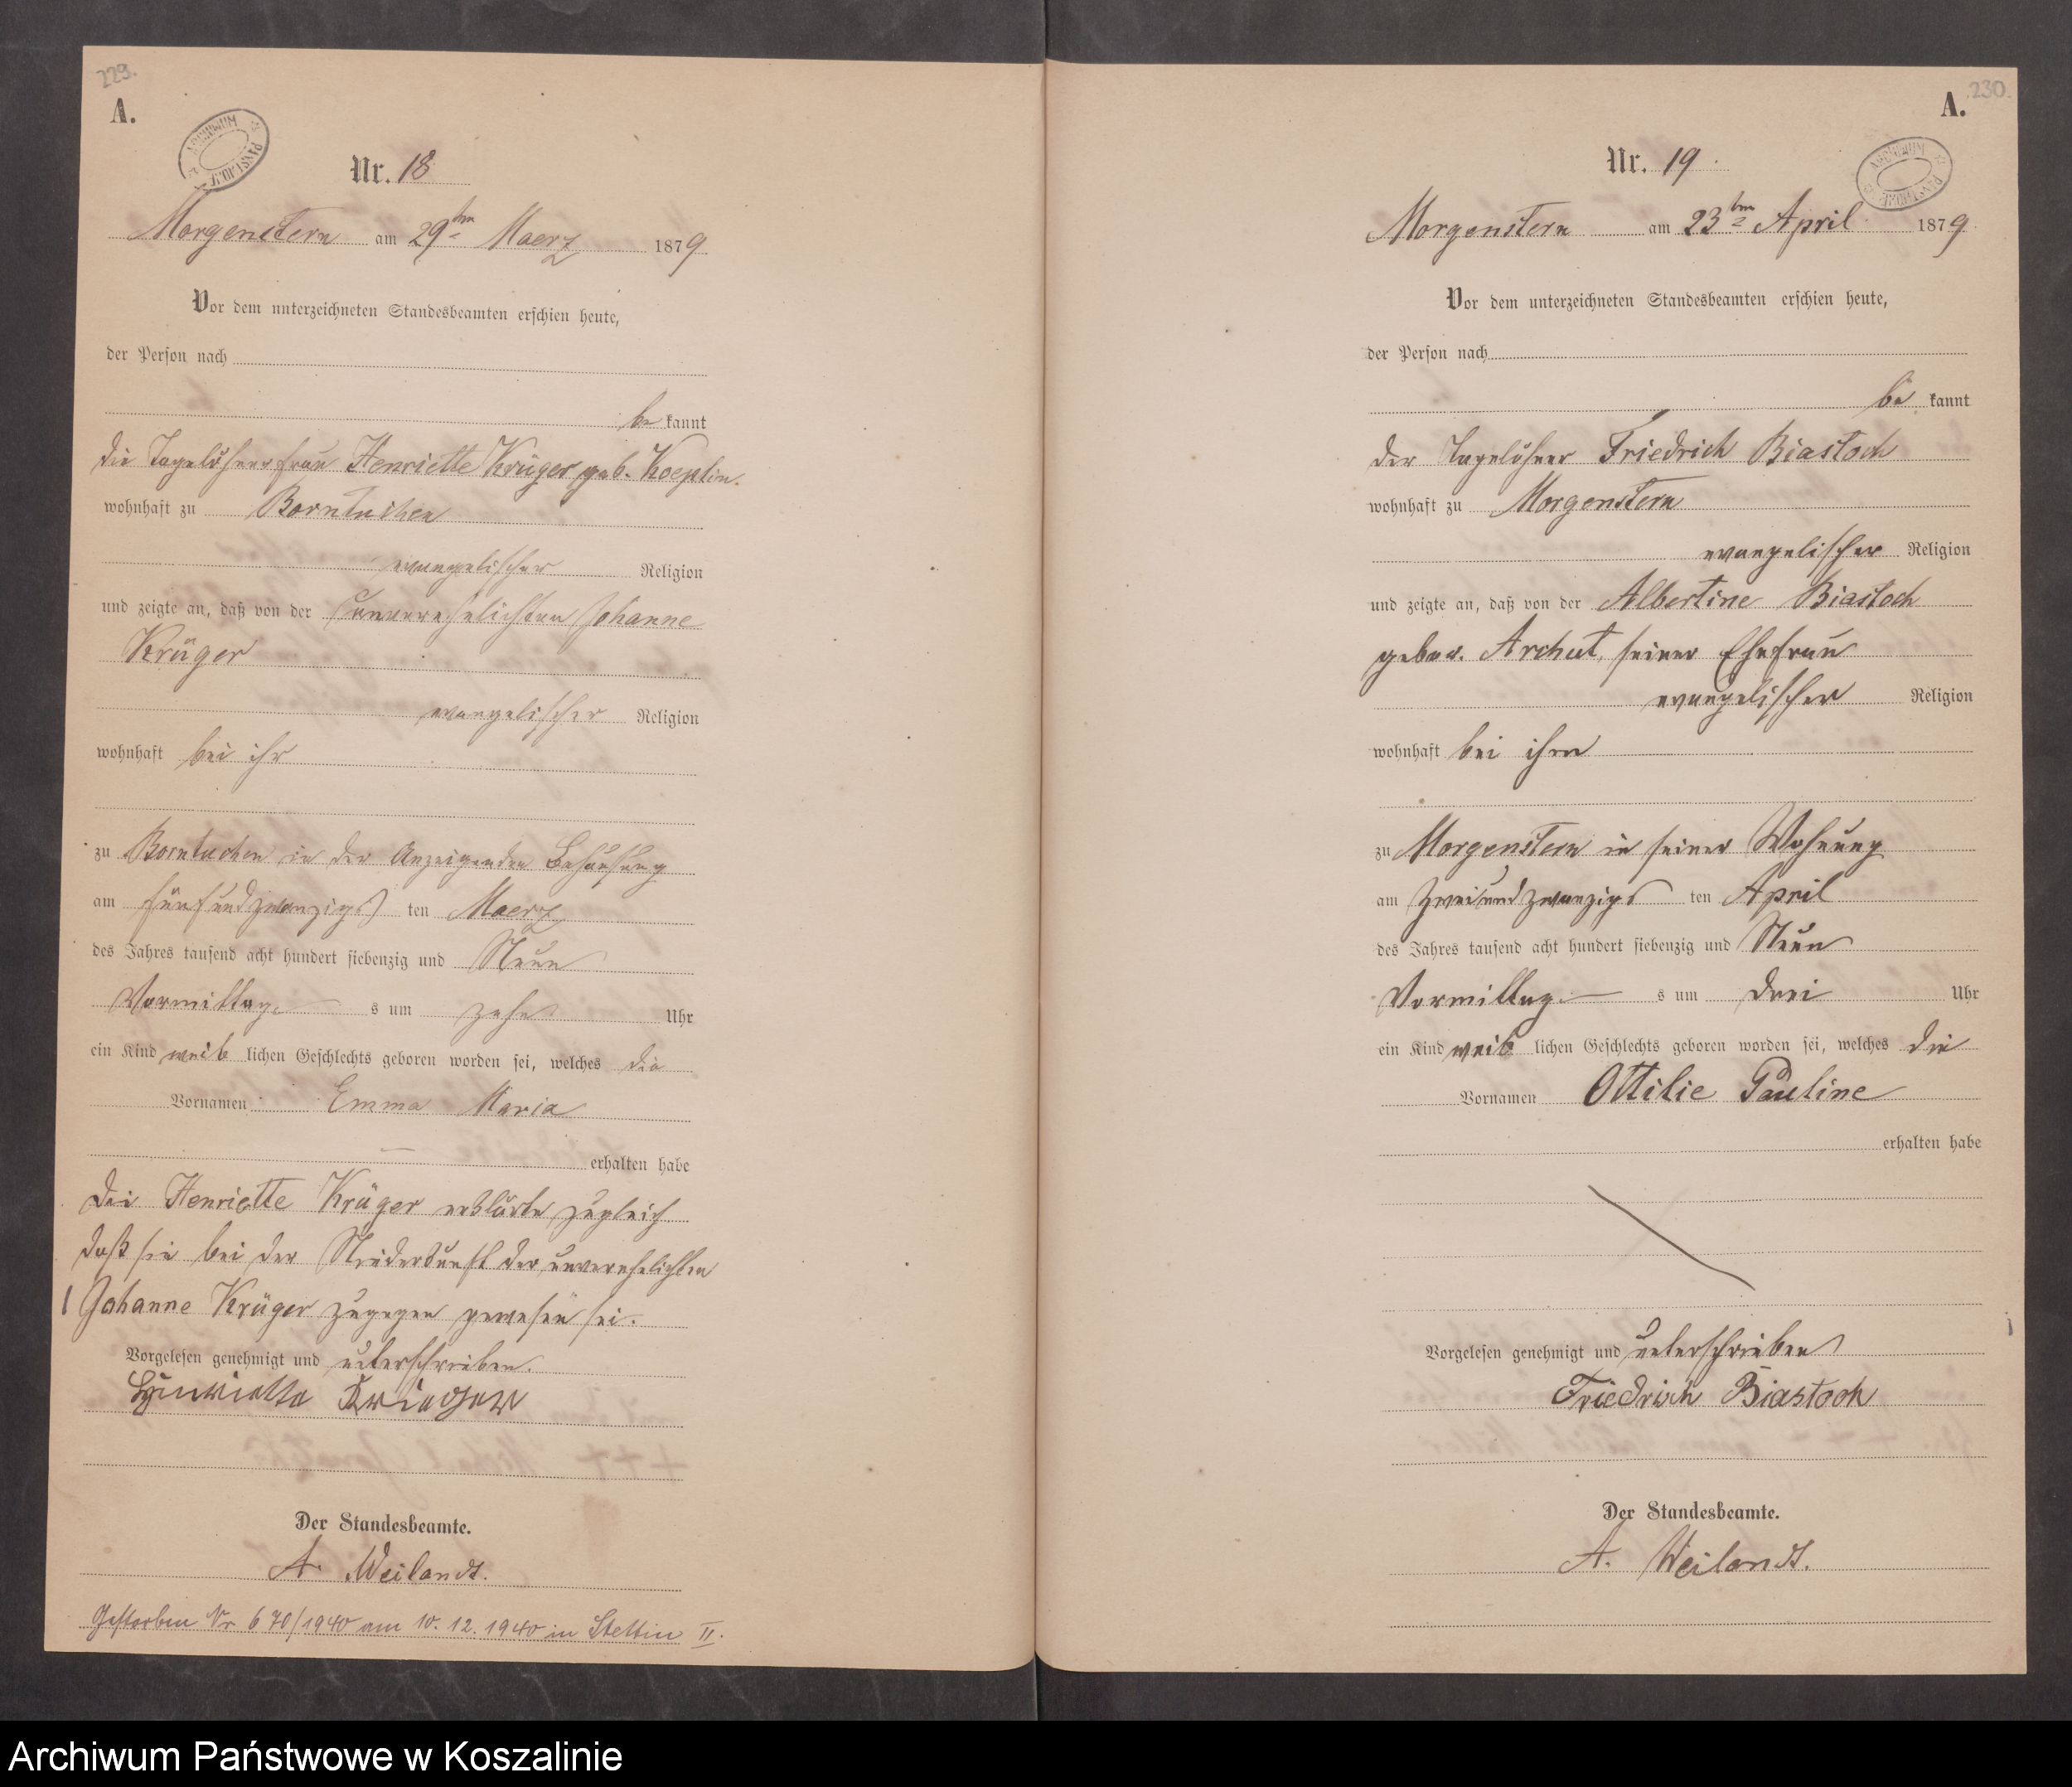 229.
A.
ARCHIWUM PAŃSTWOWE
Nr. 18
Morgenstern am 29ten Maerz 1879
Vor dem unterzeichneten Standesbeamten erschien heute,
der Person nach
be kannt
die Tagelöhnerfrau Henriette Krüger geb. Koeplin.
wohnhaft zu Borntuchen
evangelischer Religion
und zeigte an, daß von der unverehelichten Johanne
Krüger
evangelischer Religion
wohnhaft bei ihr
zu Borntuchen in der Anzeigenden Behausung
am fünfundzwanzigs ten Maerz
des Jahres tausend acht hundert siebenzig und Neun
Vormittag s um zehn Uhr
ein Kind weib lichen Geschlechts geboren worden sei, welches die
Vornamen Emma Maria
erhalten habe
Die Henriette Krüger erklärte zugleich
daß sie bei der Niederkunft der unverehelichten
Johanne Krüger zugegen gewesen sei.
Vorgelesen genehmigt und unterschrieben.
Henriette Krieger
Der Standesbeamte.
A. Weilandt.
Gestorben Nr 670/1940 am 10. 12. 1940 in Stettin II.
230.
A.
ARCHIWUM PAŃSTWOWE
Nr. 19
Morgenstern am 23ten April 1879
Vor dem unterzeichneten Standesbeamten erschien heute,
der Person nach
be kannt
der Tagelöhner Friedrich Biastoch
wohnhaft zu Morgenstern
evangelischer Religion
und zeigte an, daß von der Albertine Biastoch
gebor. Archut, seiner Ehefrau
evangelischer Religion
wohnhaft bei ihm
zu Morgenstern in seiner Wohnung
am zweiundzwanzigs ten April
des Jahres tausend acht hundert siebenzig und Neun
Vormittag s um drei Uhr
ein Kind weib lichen Geschlechts geboren worden sei, welches die
Vornamen Ottilie Pauline
erhalten habe
Vorgelesen genehmigt und unterschrieben
Friedrich Biastoch
Der Standesbeamte.
A. Weilandt.
Archiwum Państwowe w Koszalinie